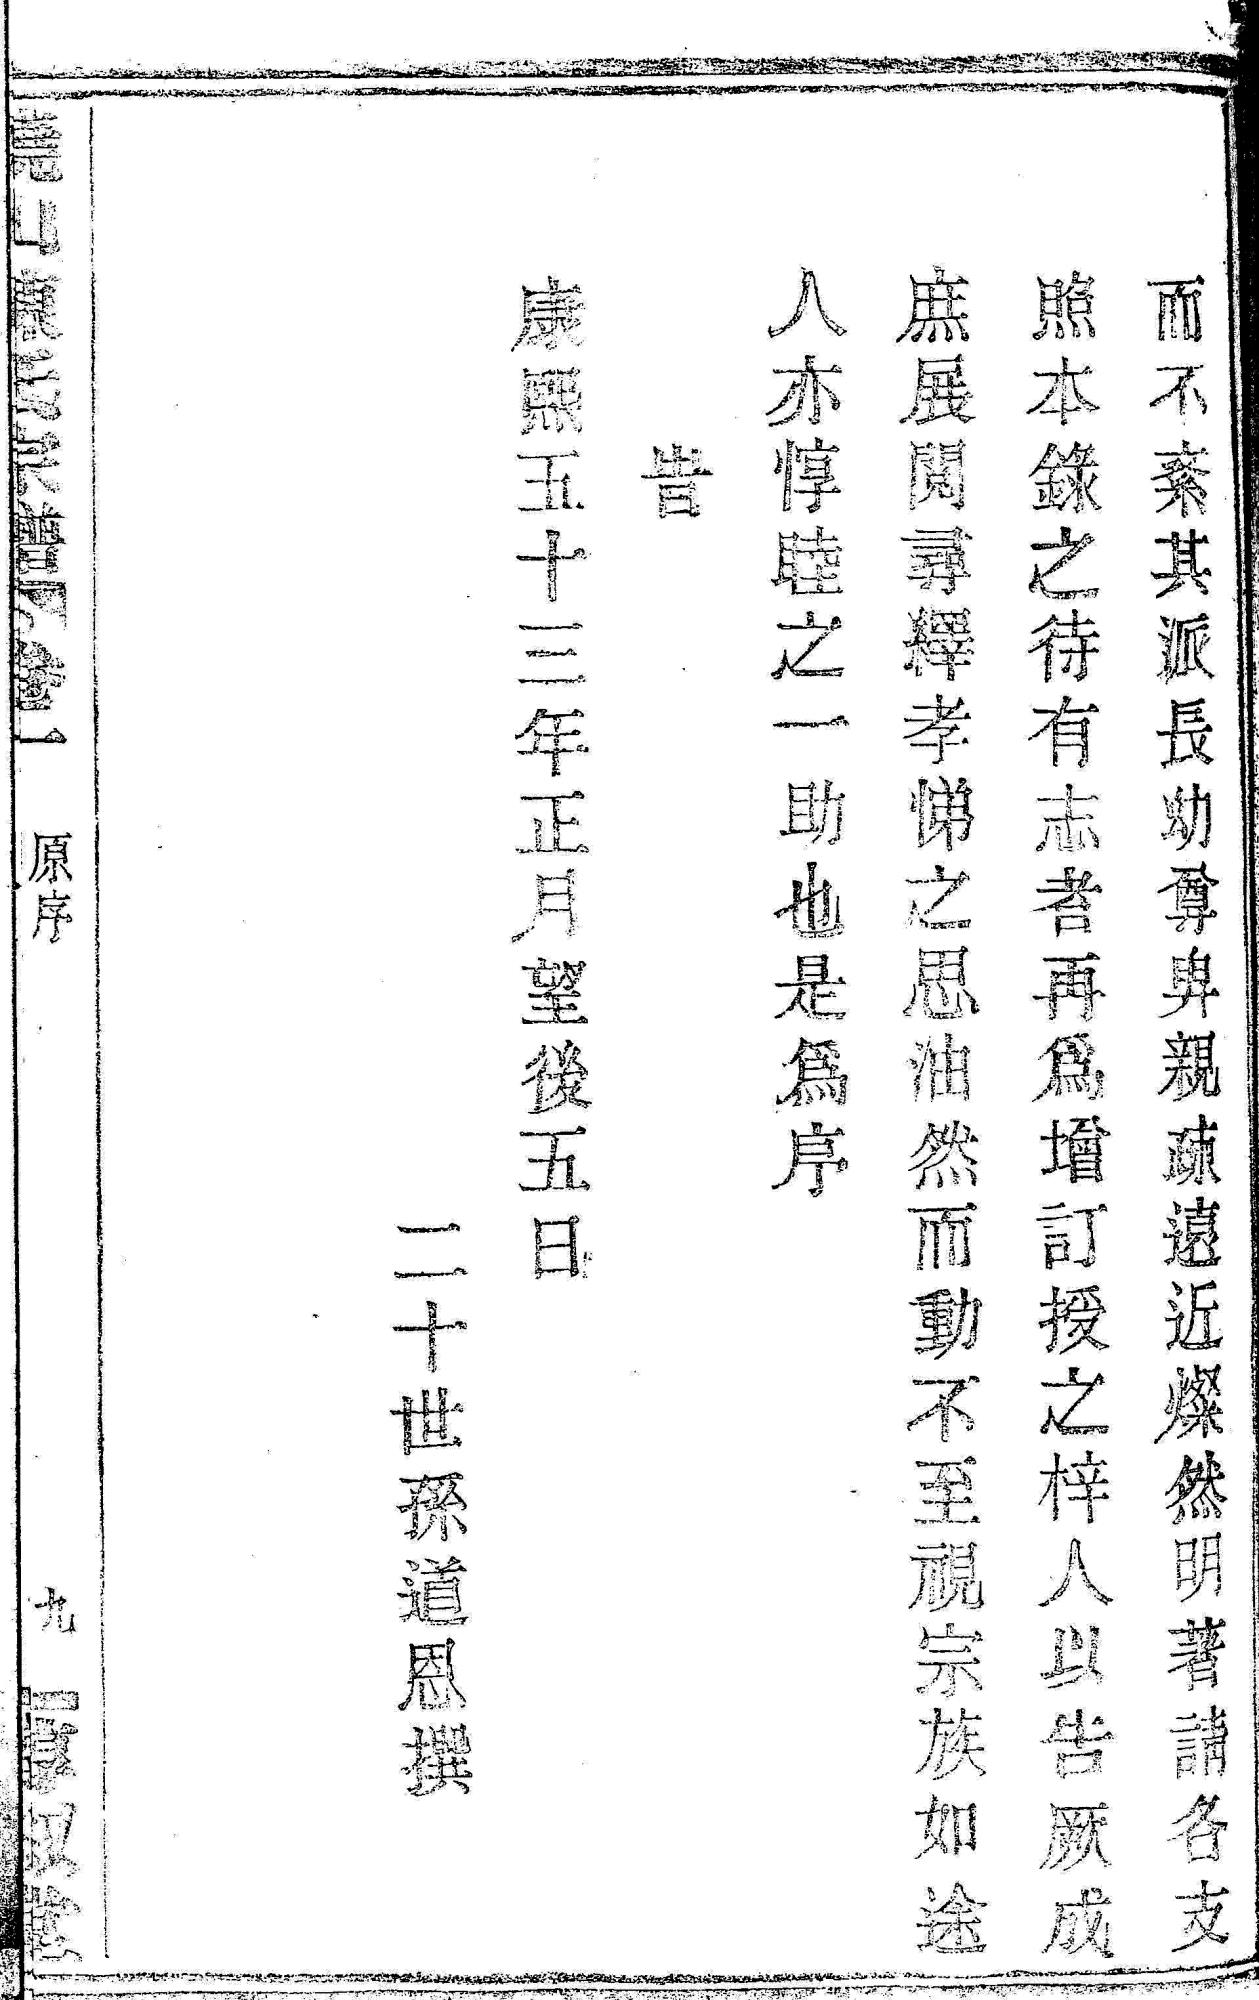 而不紊其派長幼尊卑親疎遠近燦然明著請各支
照本錄之待有志者再爲增訂授之梓人以告厥成
庶展閱尋繹孝悌之思油然而動不至視宗族如途
人亦惇睦之一助也是爲序
旹
康熙五十三年正月望後五日
二十世孫道恩撰
氏譜 卷一 原序 九 敦敘堂